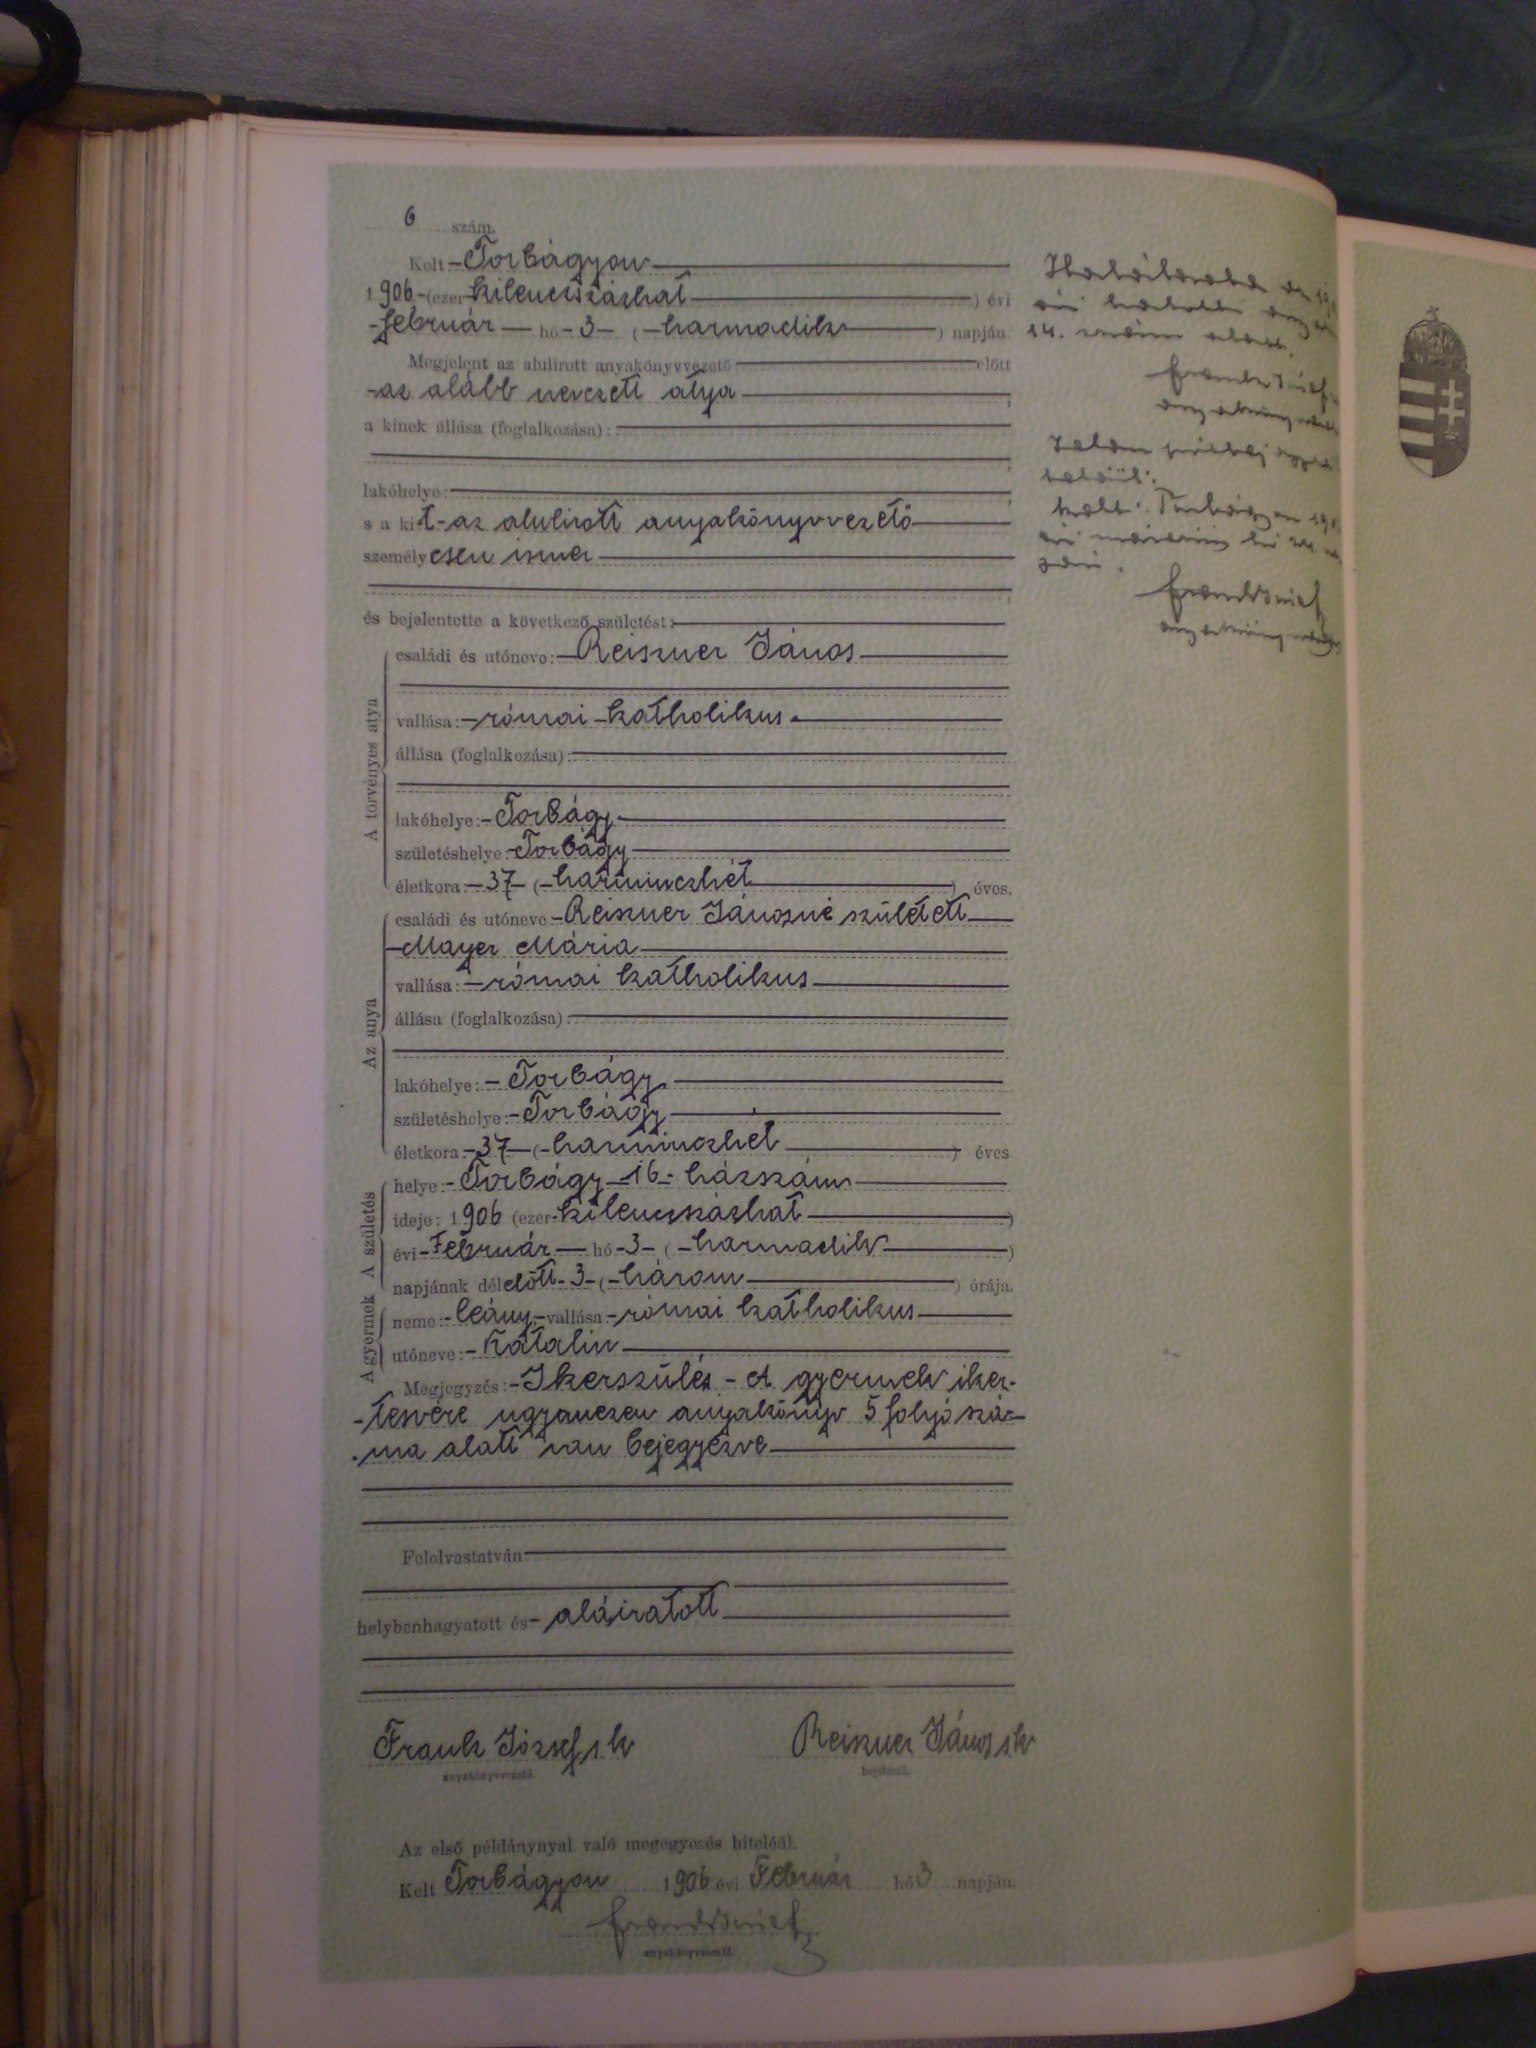 6 szám.
Kelt Torbágyon
1906 (ezer kilenczszázhat) évi
február hó 3 (harmadik) napján.
Megjelent az alulirott anyakönyvvezető előtt
az alább nevezett atya
a kinek állása (foglalkozása):
lakóhelye:
s a kit az alulirott anyakönyvvezető
személyesen ismer
és bejelentette a következő születést:
A törvényes atya
családi és utóneve: Reiszner János
vallása: római katholikus
állása (foglalkozása):
lakóhelye: Torbágy
születéshelye: Torbágy
életkora: 37 (harminczhét) éves.
Az anya
családi és utóneve Reiszner Jánosné született
Mayer Mária
vallása: római katholikus
állása (foglalkozása):
lakóhelye: Torbágy
születéshelye: Torbágy
életkora: 37 (harminczhét) éves
A születés
helye: Torbágy 16 házszám
ideje: 1906 (ezer kilenczszázhat)
évi Február hó 3 (harmadik)
napjának délelőtt 3 (három) órája.
A gyermek
neme: leány vallása: római katholikus
utóneve: Katalin
Megjegyzés: Ikerszülés - A gyermek iker-
testvére ugyanezen anyakönyv 5 folyó szá-
ma alatt van bejegyezve
Felolvastatván
helybenhagyatott és aláiratott
Frank József s.k
anyakönyvvezető.
Reiszner János s.k
bejelentő.
Az első példánynyal való megegyezés hiteléül.
Kelt Torbágyon 1906 évi Február hó 3 napján
Frank József
anyakönyvvezető.
14. szám alatt.
Frank József
anyakönyvvezető
Kelt: Torbágyon
Frank József
anyakönyvvezető